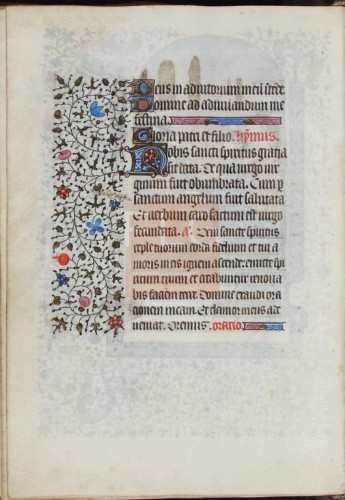 Deus in adiutorium meū ītēde
Domine ad adiuuandum me
festina
Gloria patri et filio. hymnus.
Nobis sancti spiritus gratia
sit data. De qua uirgo uir
ginum fuit obumbrata. Cum p
sanctum angelum fuit salutata
Et uerbum caro factum est uirgo
fecundata. a. Ueni sancte spiritus
reple tuorum corda fidelium et tui a
moris in eis ignem ascende: emitte spi
ritum tuum et creabuntur renoua
bis faciem terre. Domine exaudi ora
cionem meam. Et clamor meus ad te
ueniat. Oremus. oratio